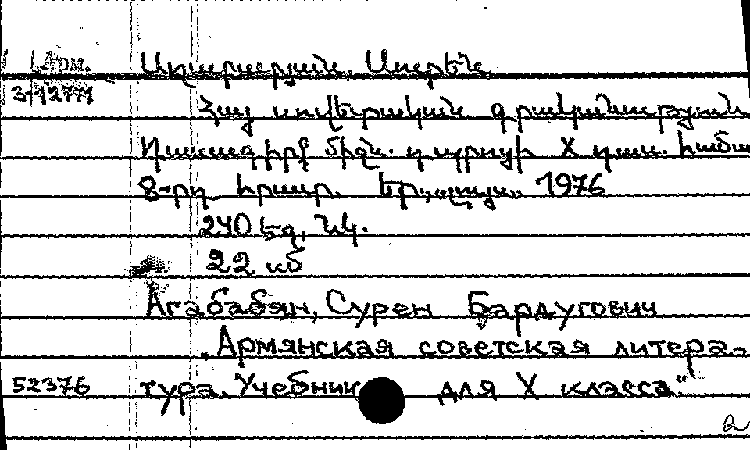 Арм.
3-12771
Աղաբաբյան, Սուրեն
Հայ սովետական գրականություն
Դասագիրք միջն. դպրոցի X դաս. համար
8-րդ հրատ. Եր., „Լույս„ 1976
240 էջ, նկ.
22 սմ
Агабабян, Сурен Бардугович
„Армянская советская литера-
52376 тура. Учебник для X класса."
2